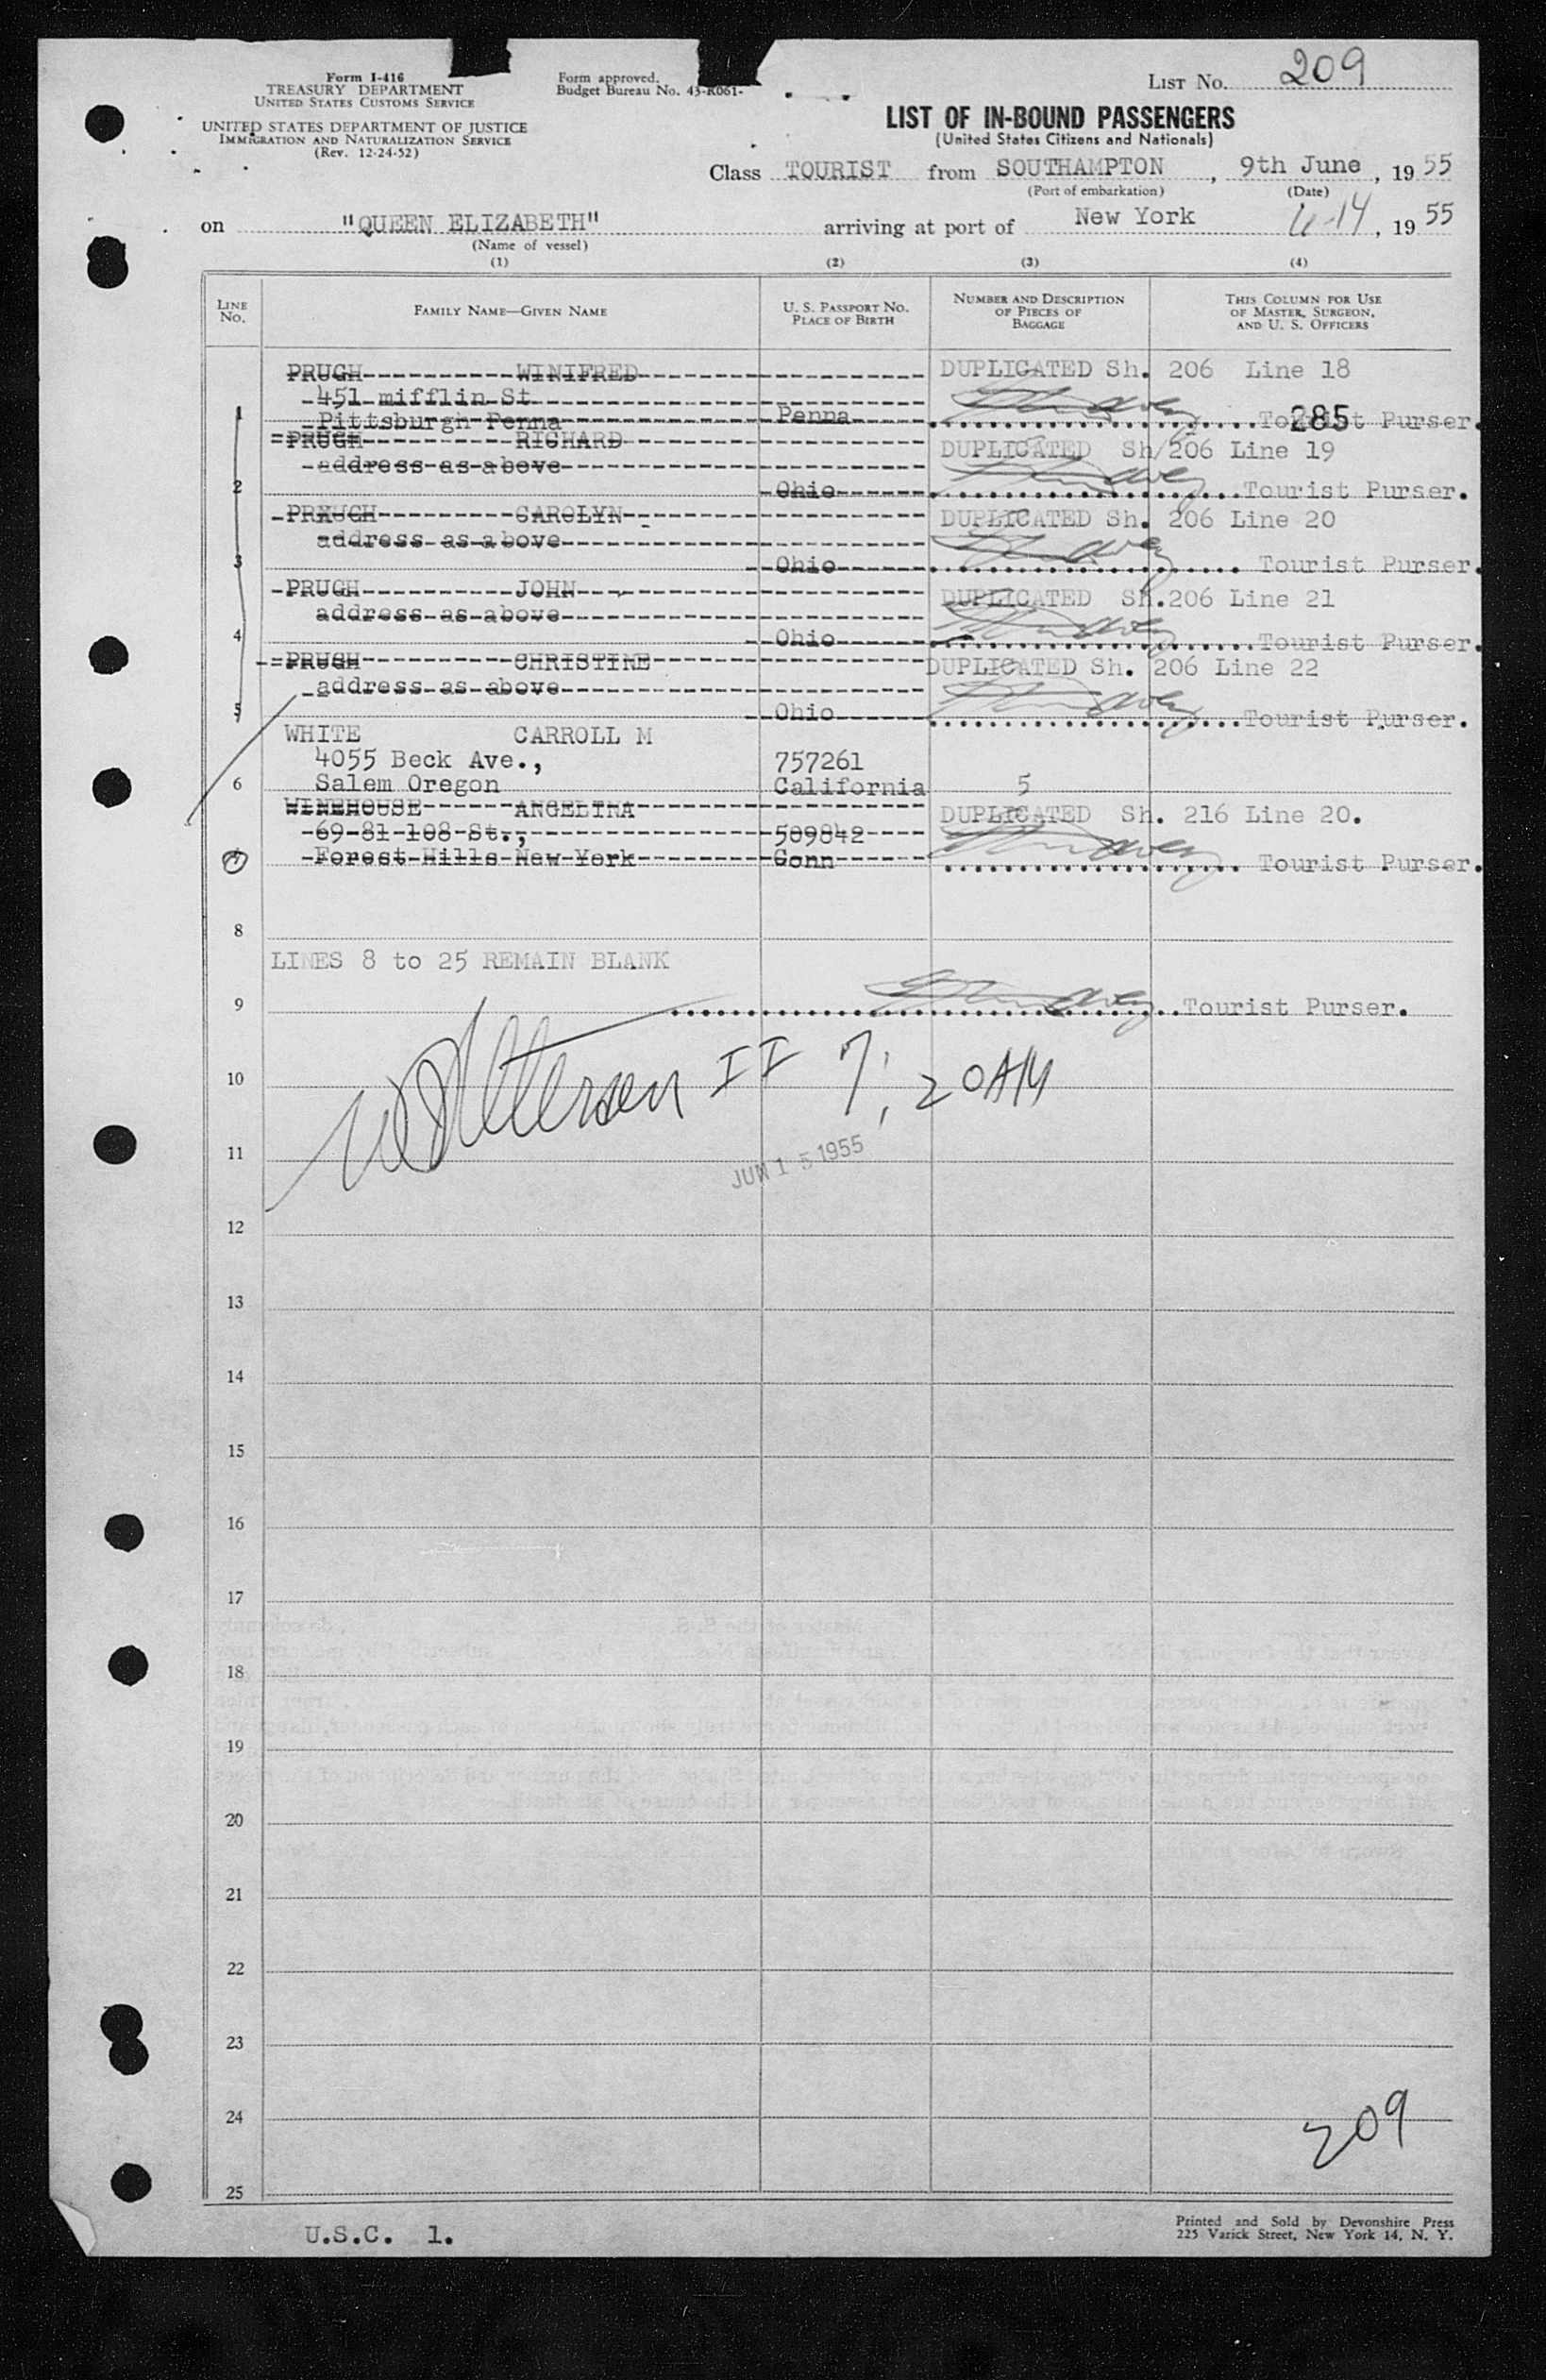 Form I-416
TREASURY DEPARTMENT
UNITED STATES CUSTOMS SERVICE
UNITED STATES DEPARTMENT OF JUSTICE
IMMIGRATION AND NATURALIZATION SERVICE
(Rev. 12-24-52)
Form approved.
Budget Bureau No. 43-R061-
LIST No. 209
LIST OF IN-BOUND PASSENGERS
(United States Citizens and Nationals)
Class TOURIST from SOUTHAMPTON, 9th June, 1955
(Port of embarkation) (Date)
on "QUEEN ELIZABETH" arriving at port of New York 6-14, 1955
(Name of vessel)
(1) (2) (3) (4)
LINE No. FAMILY NAME—GIVEN NAME U. S. PASSPORT NO. PLACE OF BIRTH NUMBER AND DESCRIPTION OF PIECES OF BAGGAGE THIS COLUMN FOR USE OF MASTER, SURGEON, AND U. S. OFFICERS
PRUGH WINIFRED DUPLICATED Sh. 206 Line 18
451 mifflin St
1 Pittsburgh Penna Penna 285 Tourist Purser.
PRUGH RICHARD DUPLICATED Sh/206 Line 19
address as above
2 Ohio Tourist Purser.
PRXUGH CAROLYN DUPLICATED Sh. 206 Line 20
address as above
3 Ohio Tourist Purser.
PRUGH JOHN DUPLICATED Sh.206 Line 21
address as above
4 Ohio Tourist Purser.
PRUGH CHRISTINE DUPLICATED Sh. 206 Line 22
address as above
5 Ohio Tourist Purser.
WHITE CARROLL M
4055 Beck Ave., 757261
6 Salem Oregon California 5
WINEHOUSE ANGELINA DUPLICATED Sh. 216 Line 20.
69-81-108 St., 509842
7 Forest Hills New York Conn Tourist Purser.
8
LINES 8 to 25 REMAIN BLANK
9 Tourist Purser.
10 II 7:20AM
11 JUN 15 1955
12
13
14
15
16
17
18
19
20
21
22
23
24 209
25
U.S.C. 1.
Printed and Sold by Devonshire Press
225 Varick Street, New York 14, N. Y.